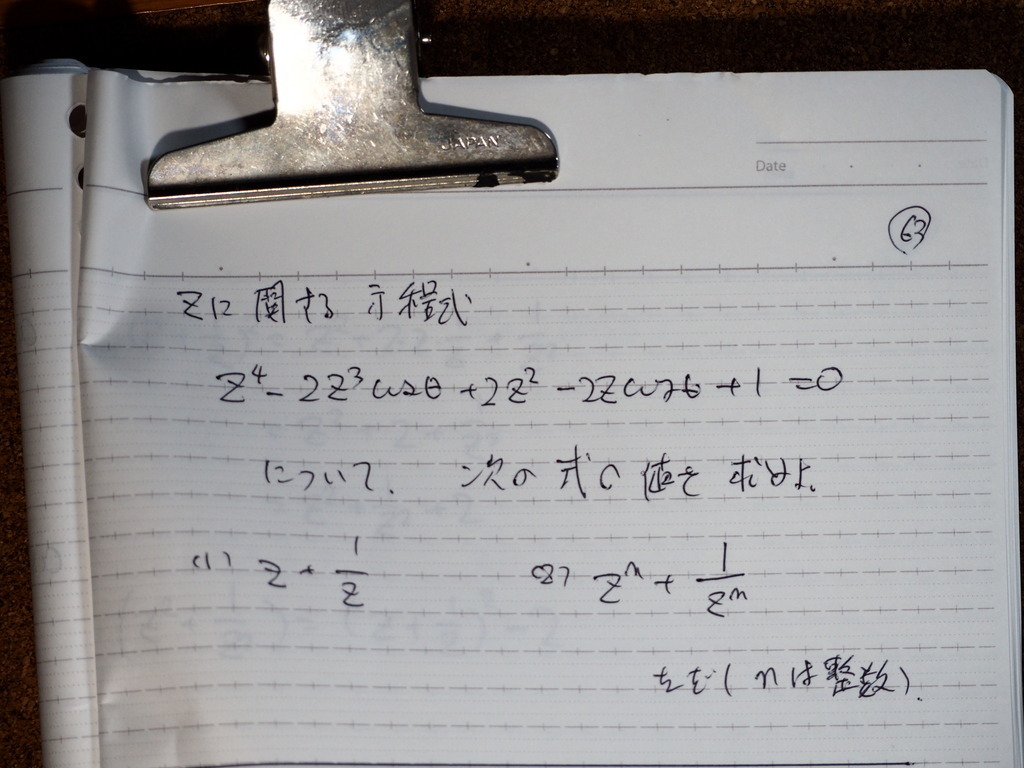 JAPAN
Date
63
zに関する方程式
z⁴-2z³cosθ+2z²-2zcosθ+1=0
について. 次の式の値を求めよ.
(1) z+1/z (2) zⁿ+1/zⁿ
ただ(nは整数).